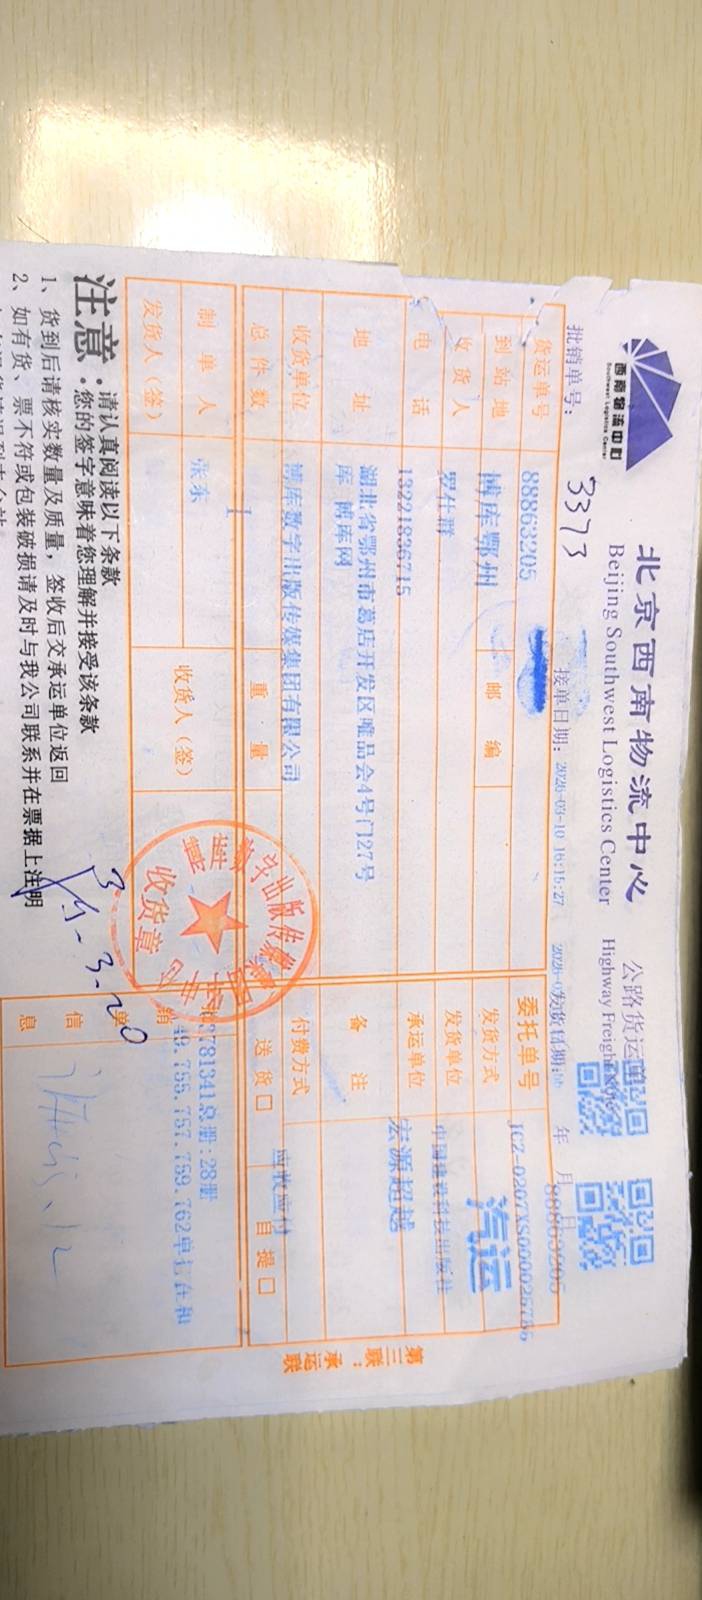 西南物流中心
Southwest Logistics Center
北京西南物流中心
Beijing Southwest Logistics Center
公路货运单
Highway Freight
批销单号：
3373
接单日期：2026-03-10 16:15:27
发货日期：
年 月 日
88863205
货运单号 88863205
委托单号 JCZ-0207XS000025756
到站地 博库鄂州 邮编
发货方式 汽运
收货人 罗仕群
发货单位 中国建设科技出版社
电话 13221826715
承运单位 宏源超越
地址 湖北省鄂州市葛店开发区唯品会4号门27号
库 博库网
备注
收货单位 博库数字出版传媒集团有限公司
付费方式 应收应付
总件数 1 重量
送货口 自提口
制单人 张东 收货人（签）
发货人（签）
销单信息
3781341总册:28册
49.755.757.759.762单打在和
数字出版传媒集团
收货章
3.20
第三联：承运联
注意：请认真阅读以下条款
您的签字意味着您理解并接受该条款
1、货到后请核实数量及质量，签收后交承运单位返回
2、如有货、票不符或包装破损请及时与我公司联系并在票据上注明